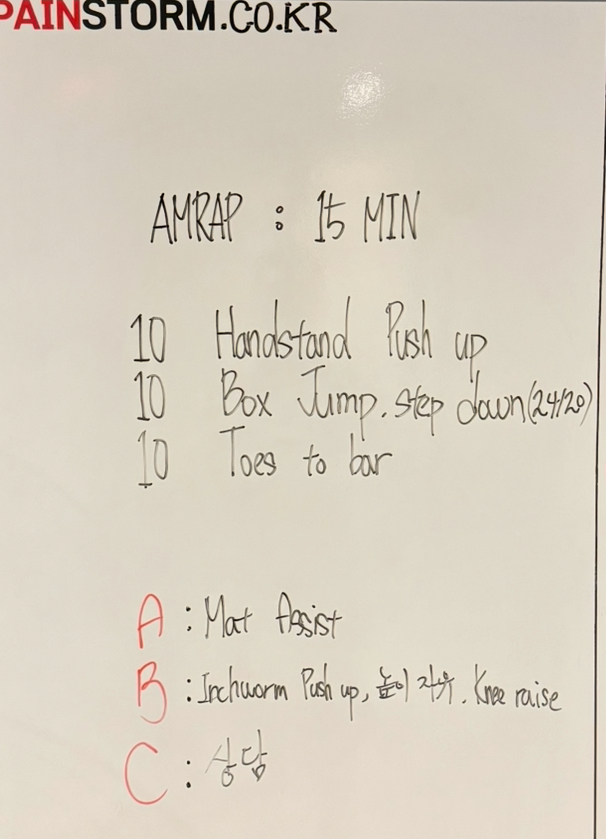 PAINSTORM.CO.KR
AMRAP : 15 MIN
10 Handstand Push up
10 Box Jump. step down(24/20)
10 Toes to bar
A : Mat Assist
B : Inchworm Push up, 높이 자유. Knee raise
C : 상담